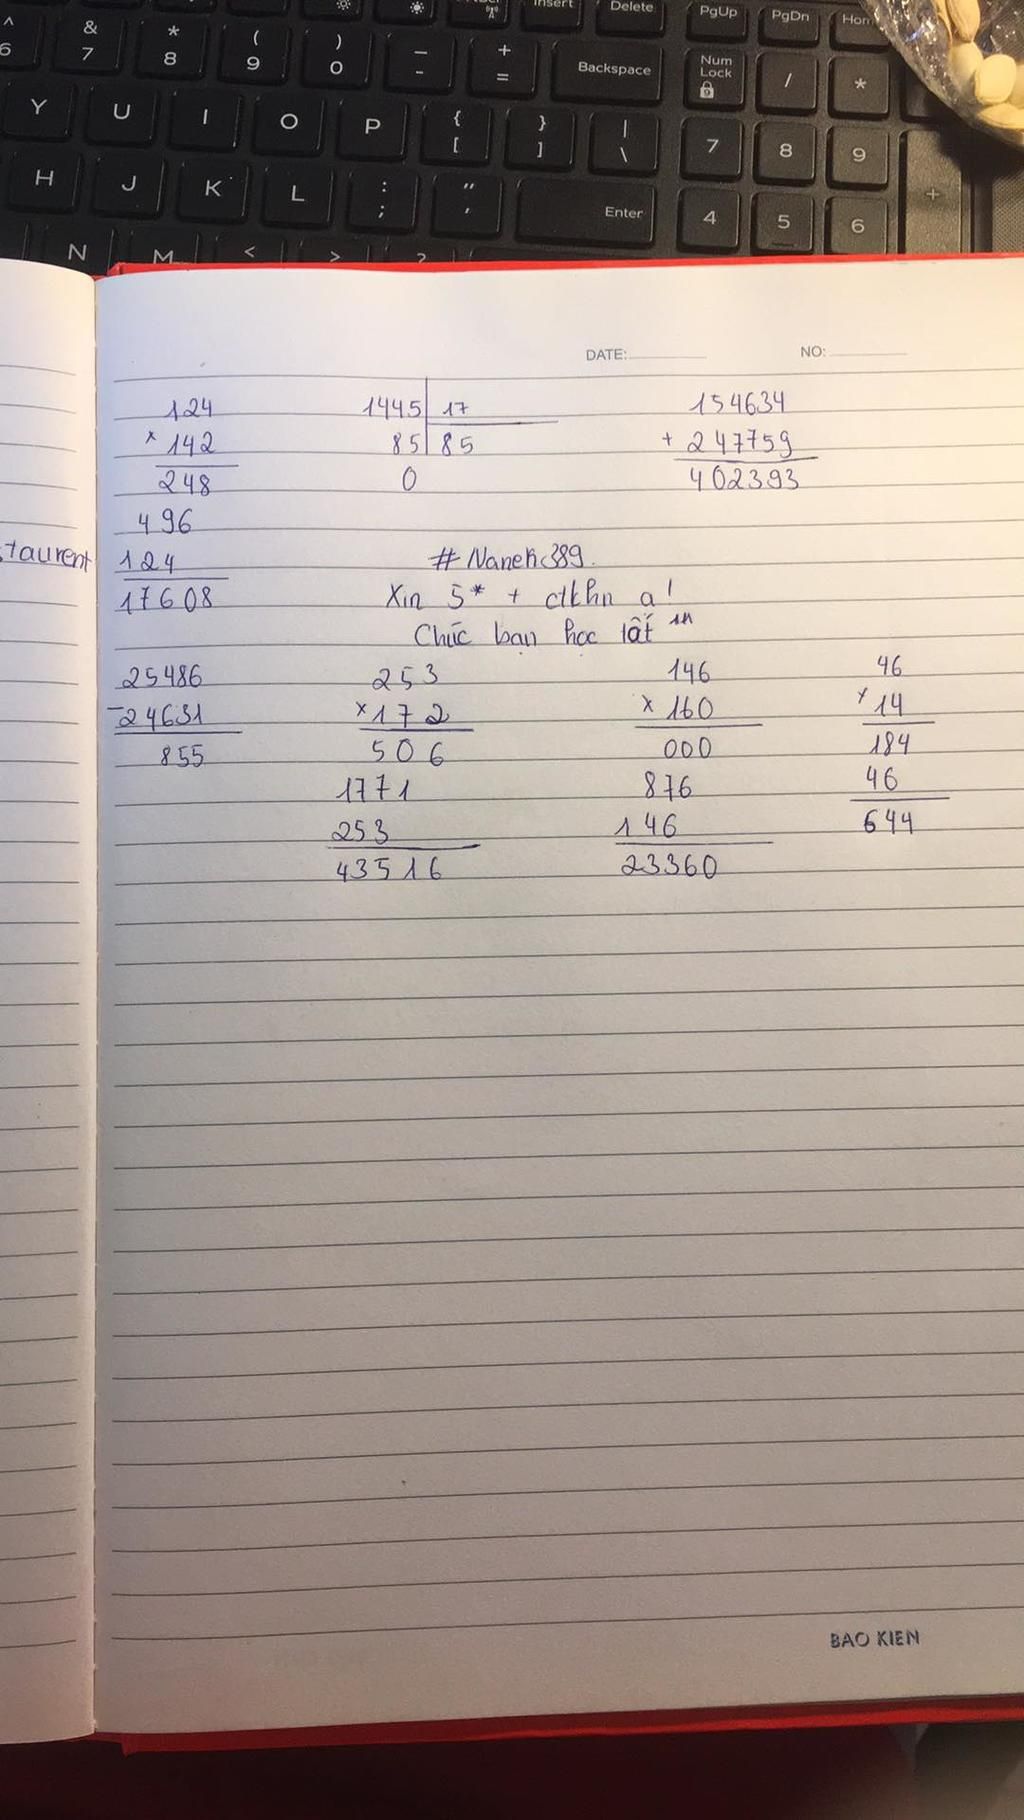 ^ & * ( ) _ + Insert Delete PgUp PgDn Hom
6 7 8 9 0 - = Backspace Num Lock / *
Y U I O P { [ } ] | \ 7 8 9
H J K L : ; " ' Enter 4 5 6 +
N M < > ?
DATE: NO:
124 1445 17 154634
× 142 85 85 + 247759
248 0 402393
496
taurent 124 # Naneh389.
17608 Xin 5* + ctlhn ạ!
Chúc bạn học tốt
25486 253 146 46
- 24631 × 172 × 160 × 14
855 506 000 184
1771 876 46
253 146 644
43516 23360
BAO KIEN